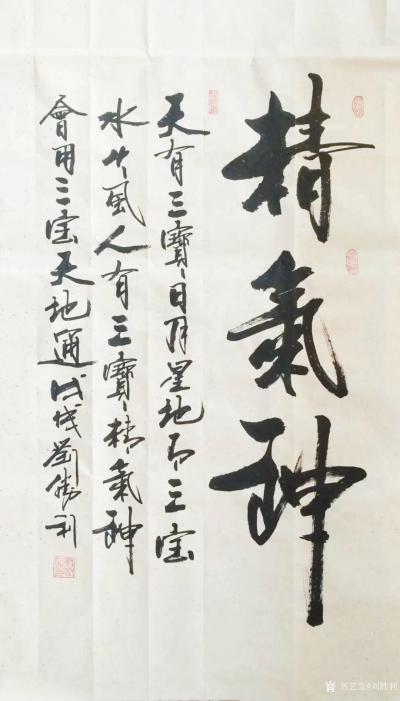 精氣神
天有三寶、日月星地有三宝
水火風人有三寶、精氣神
會用三宝天地通戊戌劉勝利
艺堂@刘胜利